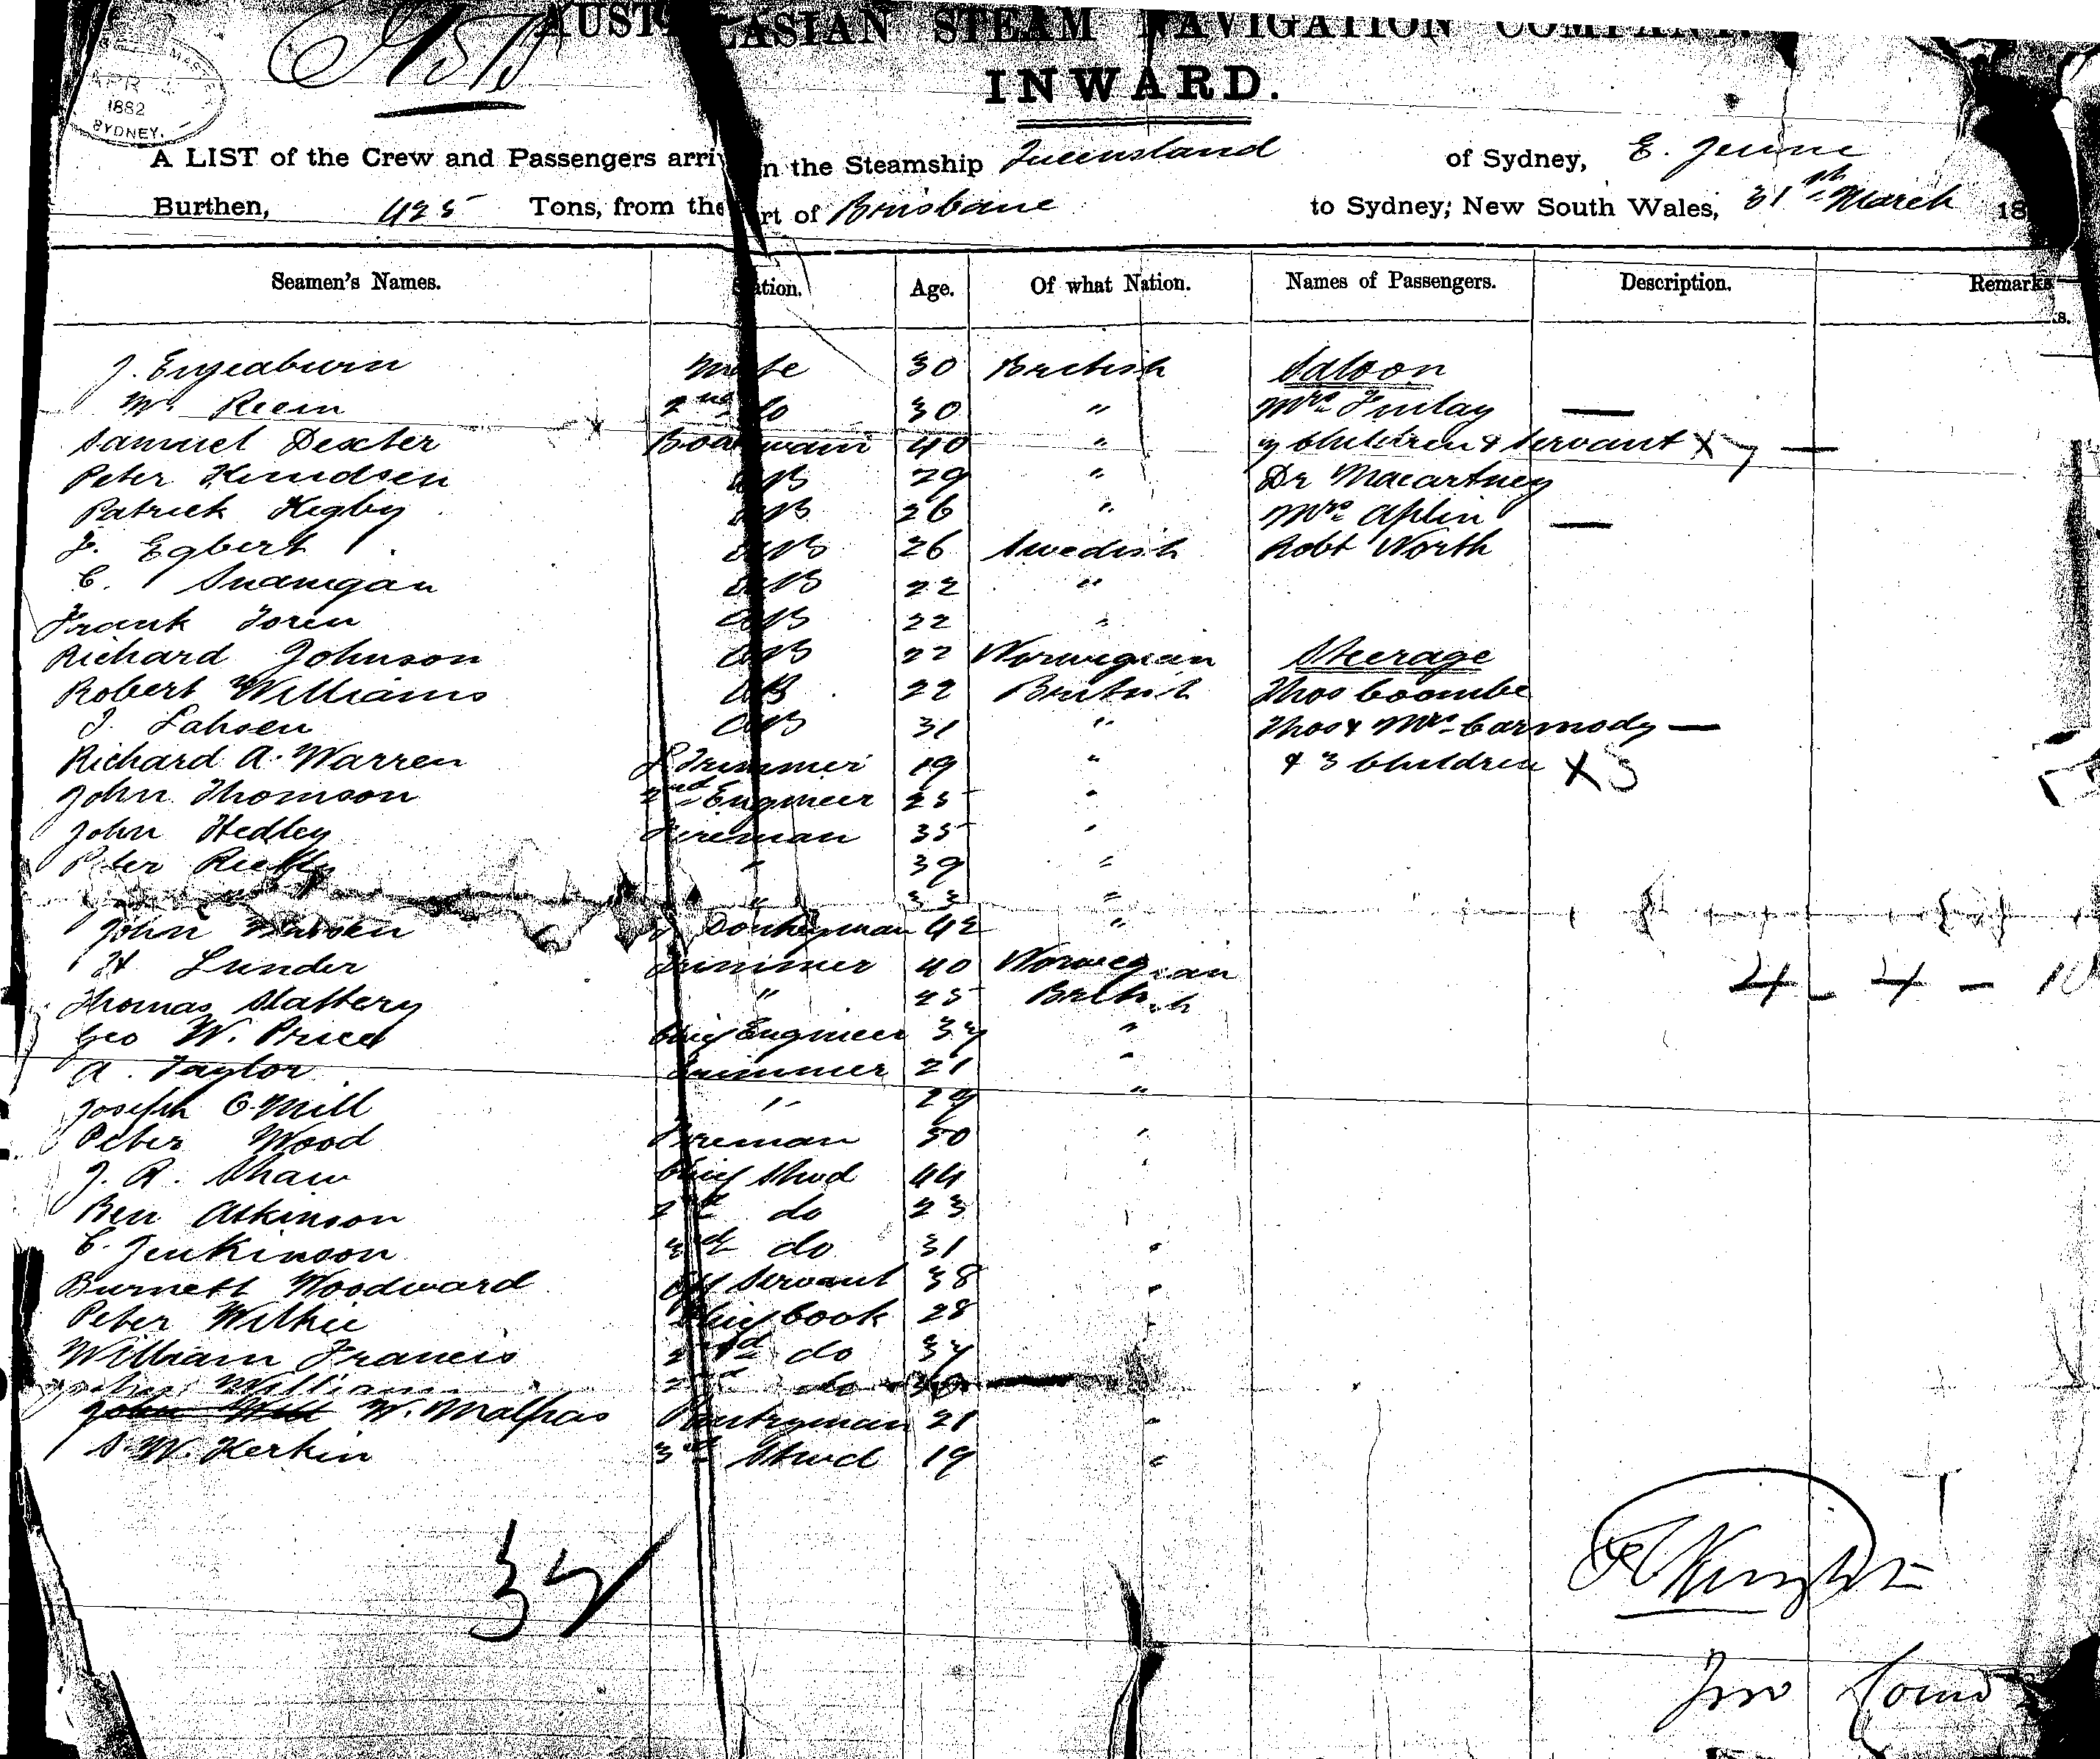 AUSTRALASIAN STEAM NAVIGATION COMPANY.
INWARD.
APR
1882
SYDNEY.
A LIST of the Crew and Passengers arri n the Steamship Queensland of Sydney, E. Jeune
Burthen, 425 Tons, from the rt of Brisbane to Sydney, New South Wales, 31st March 18
Seamen's Names. Station. Age. Of what Nation. Names of Passengers. Description. Remarks
J. Mate 30 British Saloon
W. 2nd do 30 " Mrs Finlay —
Samuel Dexter Boatswain 40 " 7 Children & Servant X 7 —
Peter Knudsen AB 29 " Dr Macartney
Patrick Higby AB 26 " Mrs Aplin —
J. Egbert AB 26 Swedish Robt Worth
C. AB 22 "
Frank Toren AB 22 "
Richard Johnson AB 22 Norwegian Steerage
Robert Williams AB 22 British Thos Coombe
J. Lahsen AB 31 " Thos & Mrs Carmody —
Richard A. Warren Trimmer 19 " & 3 Children X 3
John Thomson 2nd Engineer 25 "
John Hedley Fireman 35 "
Peter " 39 "
" 33 "
John Donkeyman 42 "
H Lunder Trimmer 40 Norwegian
Thomas Slattery " 25 British
Geo W. Price Chief Engineer 37 "
A. Taylor Trimmer 21 "
Joseph O'Mill " 29 "
Peter Wood Fireman 50 "
J. R. Shaw Chief Stwd 44 "
Ben Atkinson 2nd do 23
C. Jenkinson 3rd do 31 "
Burnett Woodward Off Servant 38 "
Peter Wilkie Chief Cook 28 "
William Francis 2nd do 37
do
John Will W. Malpas Pantryman 21 "
S. W. Kerkin 3rd Stwd 19 "
4 - 4 - 10
37